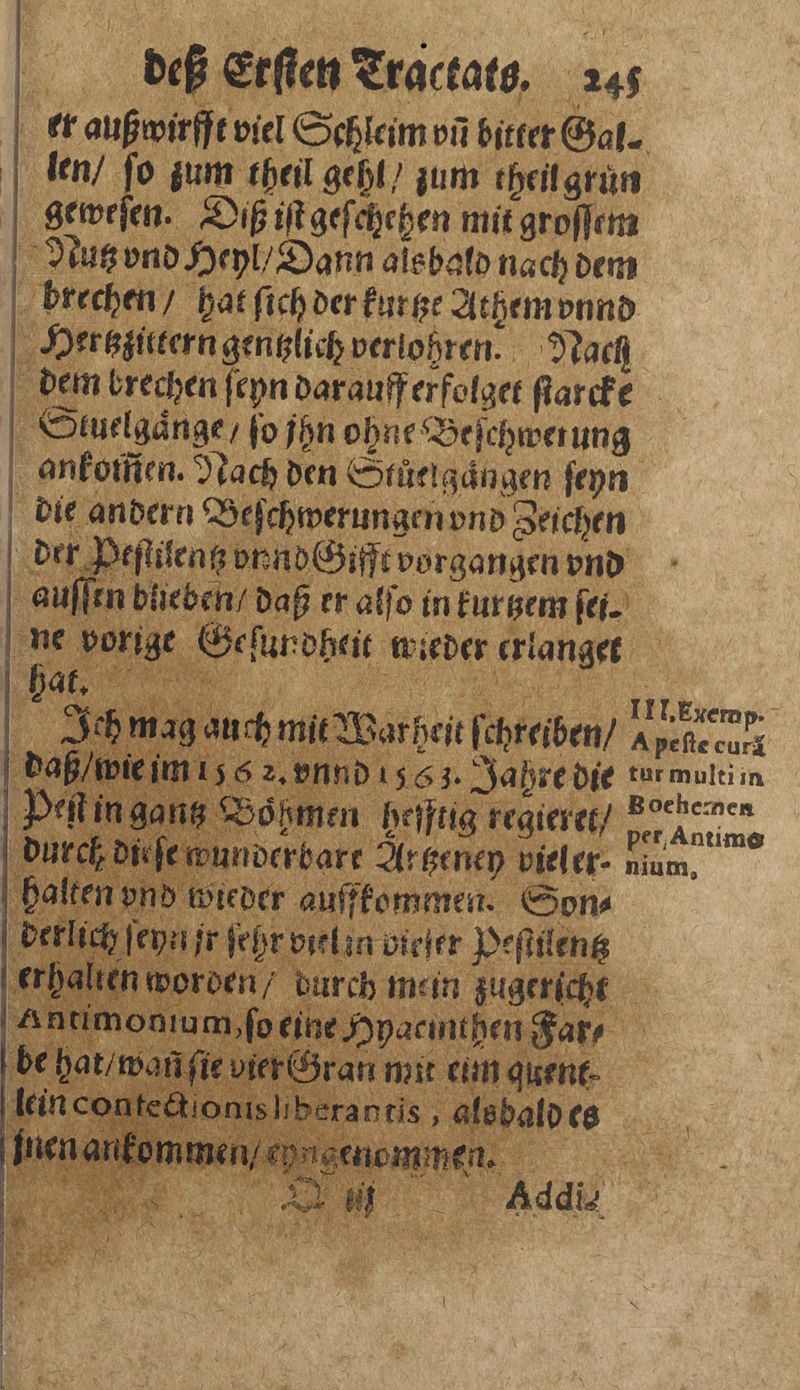 deß Ersten Tractats. 245
er außwirfft viel Schleim vñ bitter Gal-
len/ so zum theil gehl/ zum theil grün
gewesen. Diß ist geschehen mit grossem
Nutz vnd Heyl/ Dann alsbald nach dem
brechen/ hat sich der kurtze Athem vnnd
Hertzzittern gentzlich verlohren. Nach
dem brechen seyn darauff erfolget starcke
Stuelgänge/ so jhn ohne Beschwerung
ankom̃en. Nach den Stůelgängen seyn
die andern Beschwerungen vnd Zeichen
der Pestilentz vnnd Gifft vorgangen vnd
aussen blieben/ daß er also in kurtzem sei-
ne vorige Gesundheit wieder erlanget
hat.
Ich mag auch mit Warheit schreiben/
daß/ wie im 1562. vnnd 1563. Jahre die
Pest in gantz Böhmen hefftig regieret/
durch diese wunderbare Artzeney viel er-
halten vnd wieder auffkommen. Son-
derlich seyn jr sehr viel in dieser Pestilentz
erhalten worden/ durch mein zugericht
Antimonium, so eine Hyacinthen Far-
be hat/ wañ sie vier Gran mit eim quent-
lein confectionis liberantis, alsbald es
jnen ankommen/ eyngenommen.
III. Exemp.
A peste curã
tur multi in
Boehemen
per Antimo
nium.
Q iij Addi-